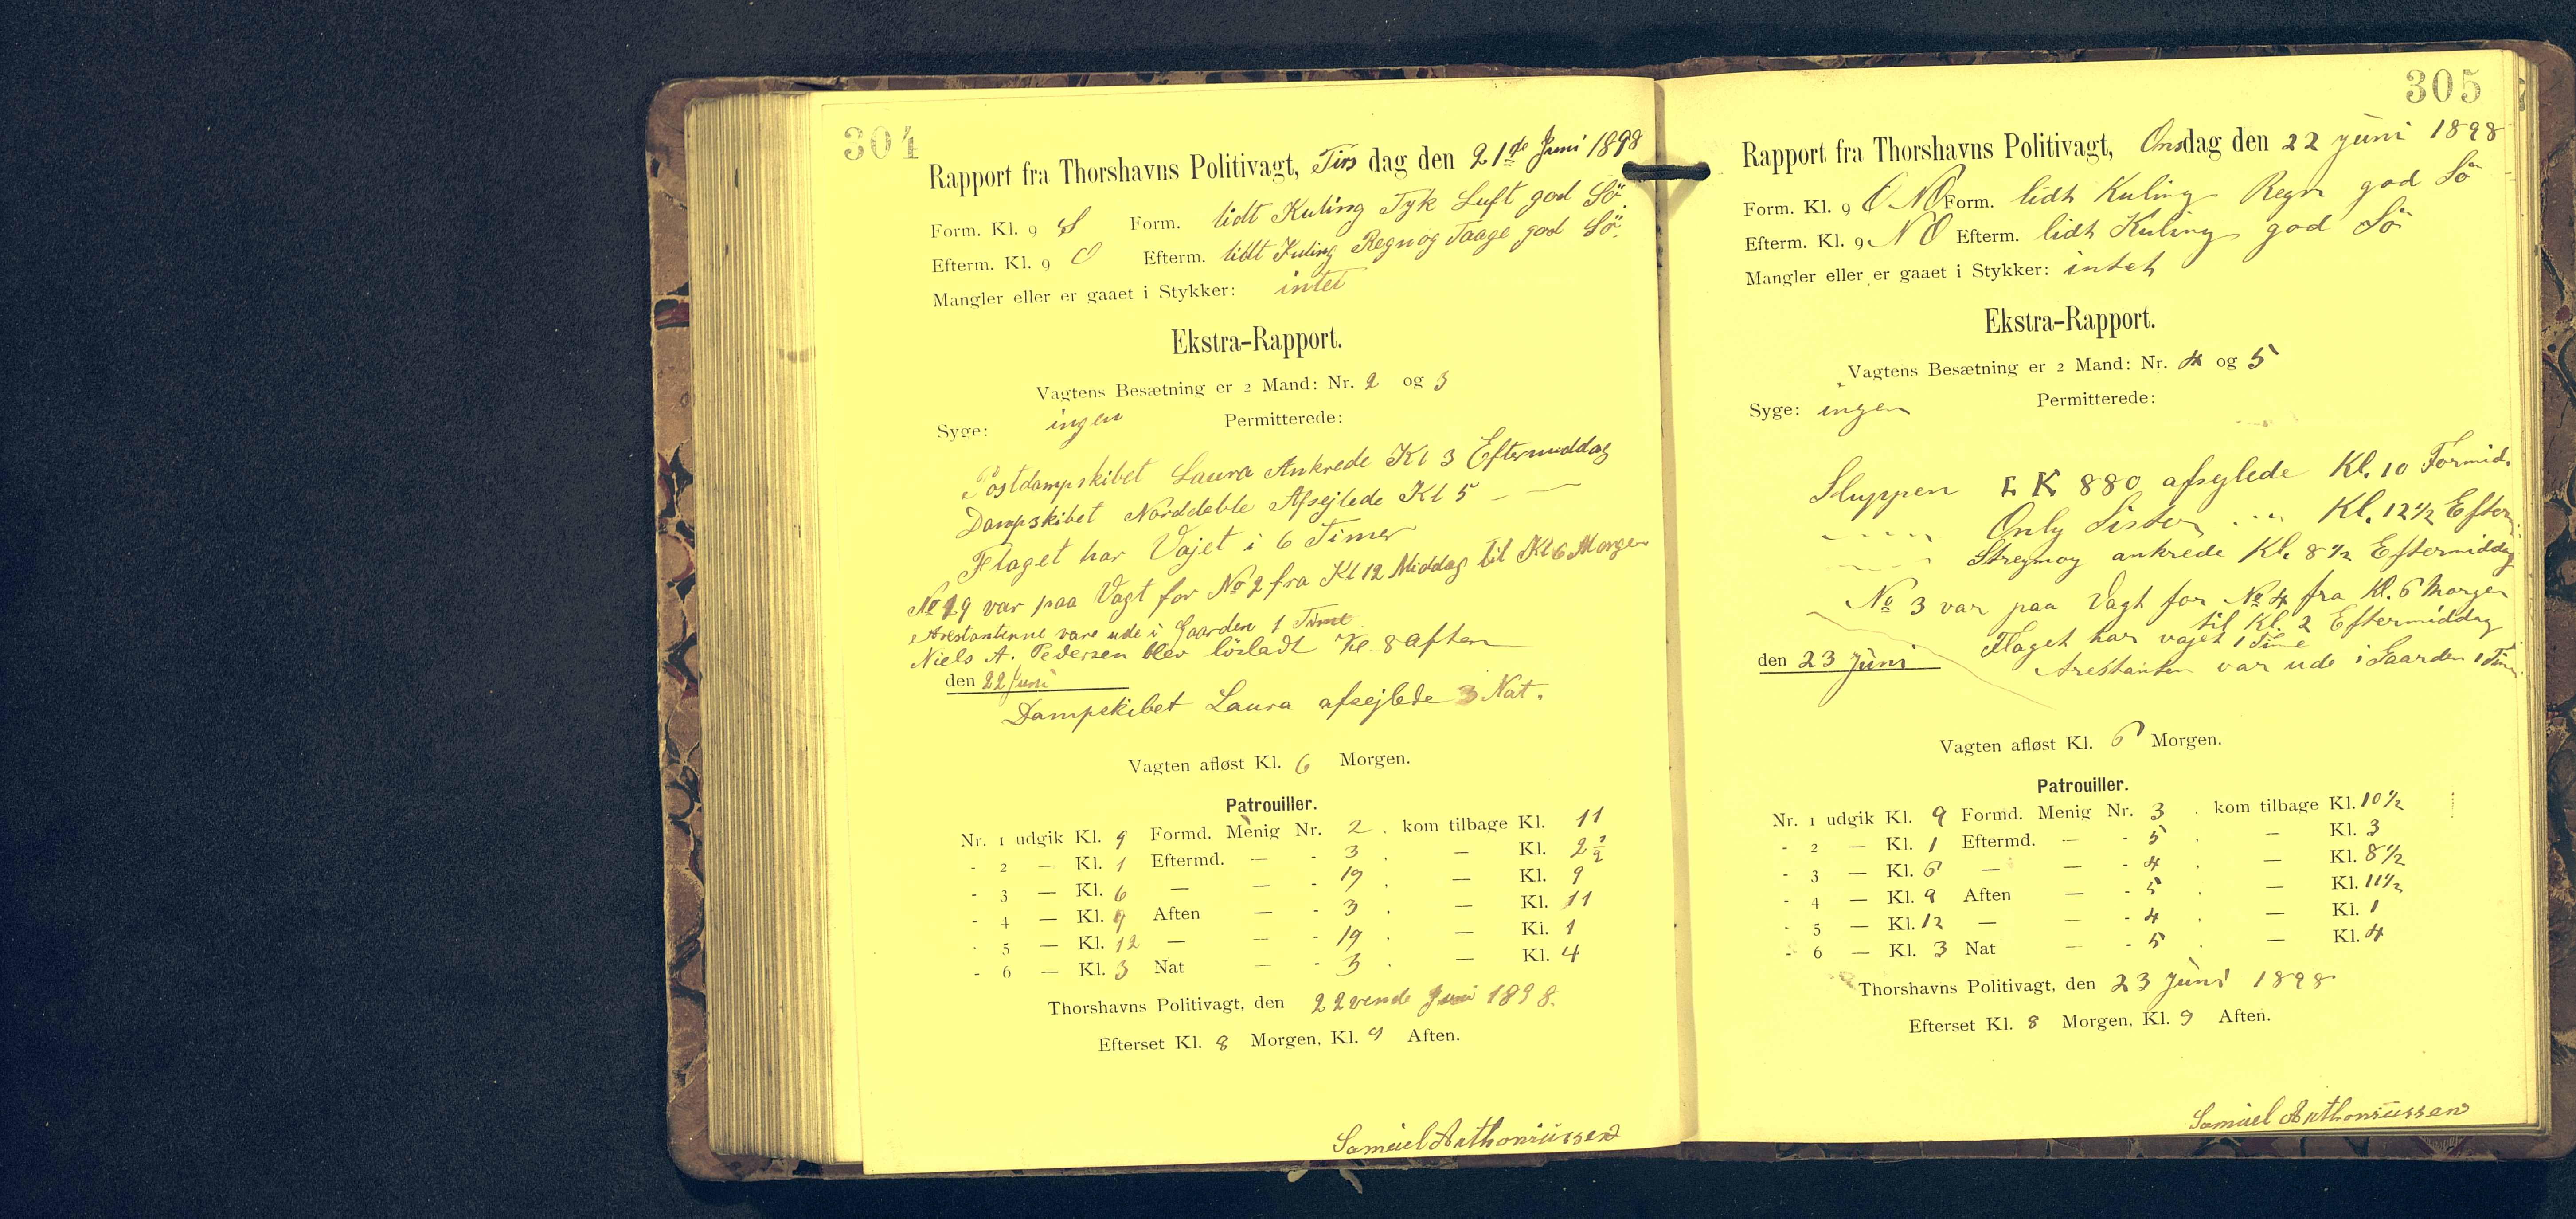 304
Rapport fra Thorshavns Politivagt, Tirsdag den 21de Juni 1898
Form. Kl. 9 S Form. lidt Kuling Tyk Luft god Sö.
Efterm. Kl. 9 O Efterm. lidt Kuling Regn og Taage god Sö.
Mangler eller er gaaet i Stykker: intet
Ekstra-Rapport.
Vagtens Besætning er 2 Mand: Nr. 2 og 3
Syge: ingen Permitterede:
Postdampskibet Laura Ankrede Kl 3 Eftermiddag
Dampskibet Norddeble Afsejlede Kl 5 — —
Flaget har Vajet i 6 Timer
No 19 var paa Vagt for No 2 fra Kl 12 Middag til Kl 6 Morgen
Arestanterne vare ude i Gaarden 1 Time
Niels A. Pedersen blev lösladt Kl 8 aften
den 22 Juni
Dampskibet Laura afsejlede 3 Nat.
Vagten afløst Kl. 6 Morgen.
Patrouiller.
Nr. 1 udgik Kl. 9 Formd. Menig Nr. 2 . kom tilbage Kl. 11
- 2 — Kl. 1 Eftermd. — - 3 . — Kl. 2 1/2
- 3 — Kl. 6 — — - 19 . — Kl. 9
- 4 — Kl. 9 Aften — - 3 . — Kl. 11
- 5 — Kl. 12 — — - 19 . — Kl. 1
- 6 — Kl. 3 Nat — - 3 . — Kl. 4
Thorshavns Politivagt, den 22vende Juni 1898.
Efterset Kl. 8 Morgen, Kl. 9 Aften.
Samuel Anthoniussen
305
Rapport fra Thorshavns Politivagt, Onsdag den 22 juni 1898
Form. Kl. 9 O NO Form. lidt Kuling Regn god Sö
Efterm. Kl. 9 NO Efterm. lidt Kuling god Sö
Mangler eller er gaaet i Stykker: intet
Ekstra-Rapport.
Vagtens Besætning er 2 Mand: Nr. 4 og 5
Syge: ingen Permitterede:
Sluppen K 880 afseglede Kl. 10 Formid.
— Only Sister — Kl. 12 1/2 Efterm.
— Strejmoy ankrede Kl. 8 1/2 Eftermiddag
No 3 var paa Vagt for No 4 fra Kl. 6 Morgen
til Kl. 2 Eftermiddag
Flaget har vajet 1 Time
den 23 Juni Arestanten var ude i Gaarden 1 Time
Vagten afløst Kl. 6 Morgen.
Patrouiller.
Nr. 1 udgik Kl. 9 Formd. Menig Nr. 3 . kom tilbage Kl. 10 1/2
- 2 — Kl. 1 Eftermd. — - 5 . — Kl. 3
- 3 — Kl. 6 — — - 4 . — Kl. 8 1/2
- 4 — Kl. 9 Aften — - 5 . — Kl. 11 1/2
- 5 — Kl. 12 — — - 4 . — Kl. 1
- 6 — Kl. 3 Nat — - 5 . — Kl. 4
Thorshavns Politivagt, den 23 Juni 1898
Efterset Kl. 8 Morgen, Kl. 9 Aften.
Samuel Anthoniussen